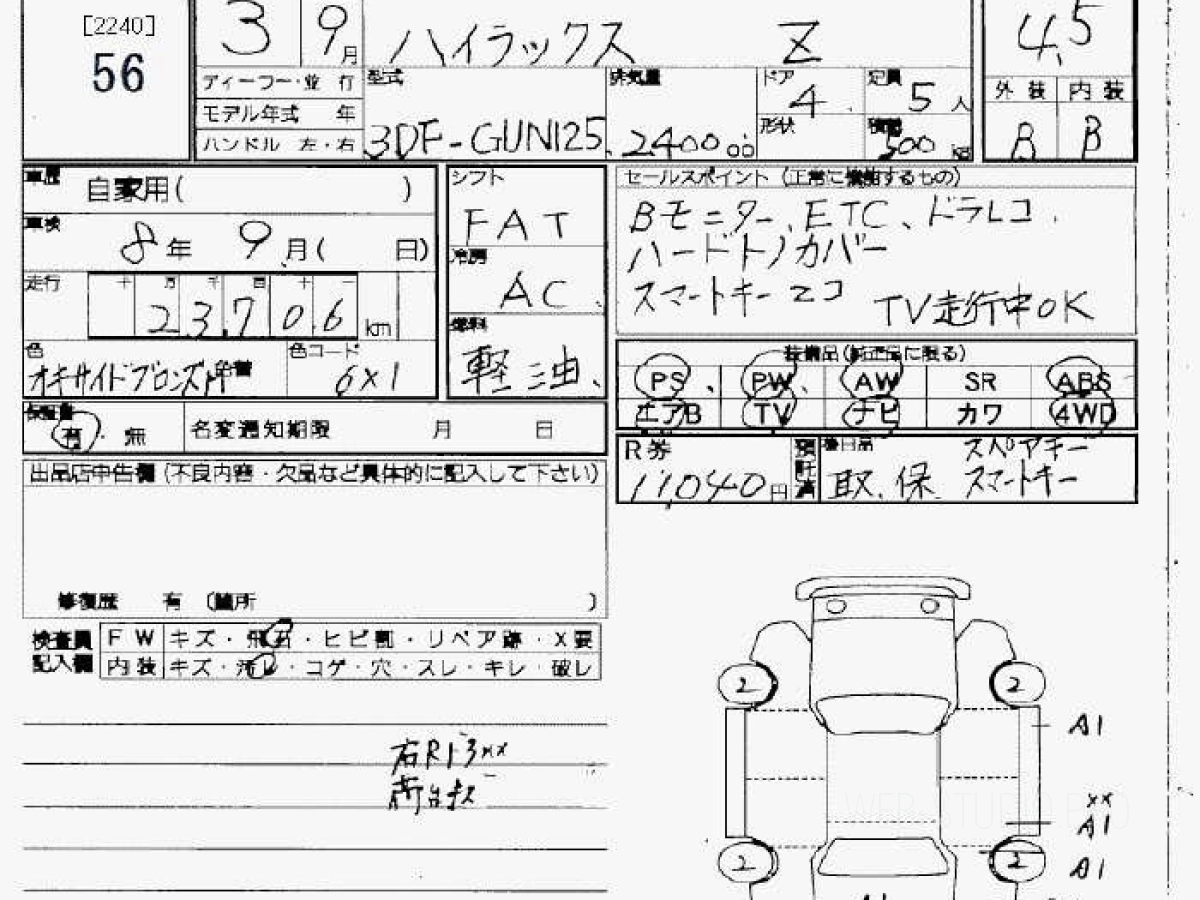 [2240]
56
3 9月 ハイラックス Z 4.5
ディーラー・並行
モデル年式 年
ハンドル 左・右
型式 3DF-GUN125
排気量 2400 cc
ドア 4
形状
定員 5人
積載 500 kg
外装 内装
B B
車歴 自家用( )
車検 8年 9月( 日)
走行 十 万 千 百 十 一
23,706 km
色 オキサイドブロンズM 色替
色コード 6X1
シフト
FAT
冷房
AC
燃料
軽油
セールスポイント (正常に機能するもの)
Bモニター、ETC、ドラレコ
ハードトノカバー
スマートキー2コ TV走行中OK
装備品(純正品に限る)
PS PW AW SR ABS
エアB TV ナビ カワ 4WD
保証書
有・無 名変通知期限 月 日
R券
11,040円
預託済
後日品 スペアキー
取、保 スマートキー
出品店申告欄 (不良内容・欠品など具体的に記入して下さい)
修復歴 有 〔箇所 〕
検査員
記入欄
FW キズ・飛石・ヒビ割・リペア跡・X要
内装 キズ・汚レ・コゲ・穴・スレ・キレ・破レ
荷台キズ
2 2
A1
XX
A1
2 2 A1